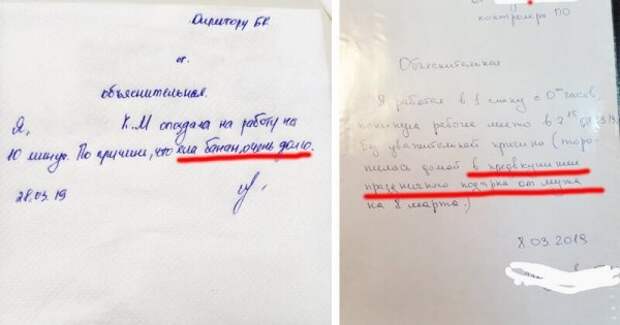 Директору БК
от
объяснительная.
Я, К.М опоздала на работу на
10 минут. По причине, что ела банан, очень долго.
28.03.19
контролера ПО
Объяснительная
Я работая в 1 смену с 0⁰⁰ часов,
покинула рабочее место в 2¹⁵ 08.03.19
без уважительной причины (торо-
пилась домой в предвкушении
праздничного подарка от мужа
на 8 марта.)
8.03.2019